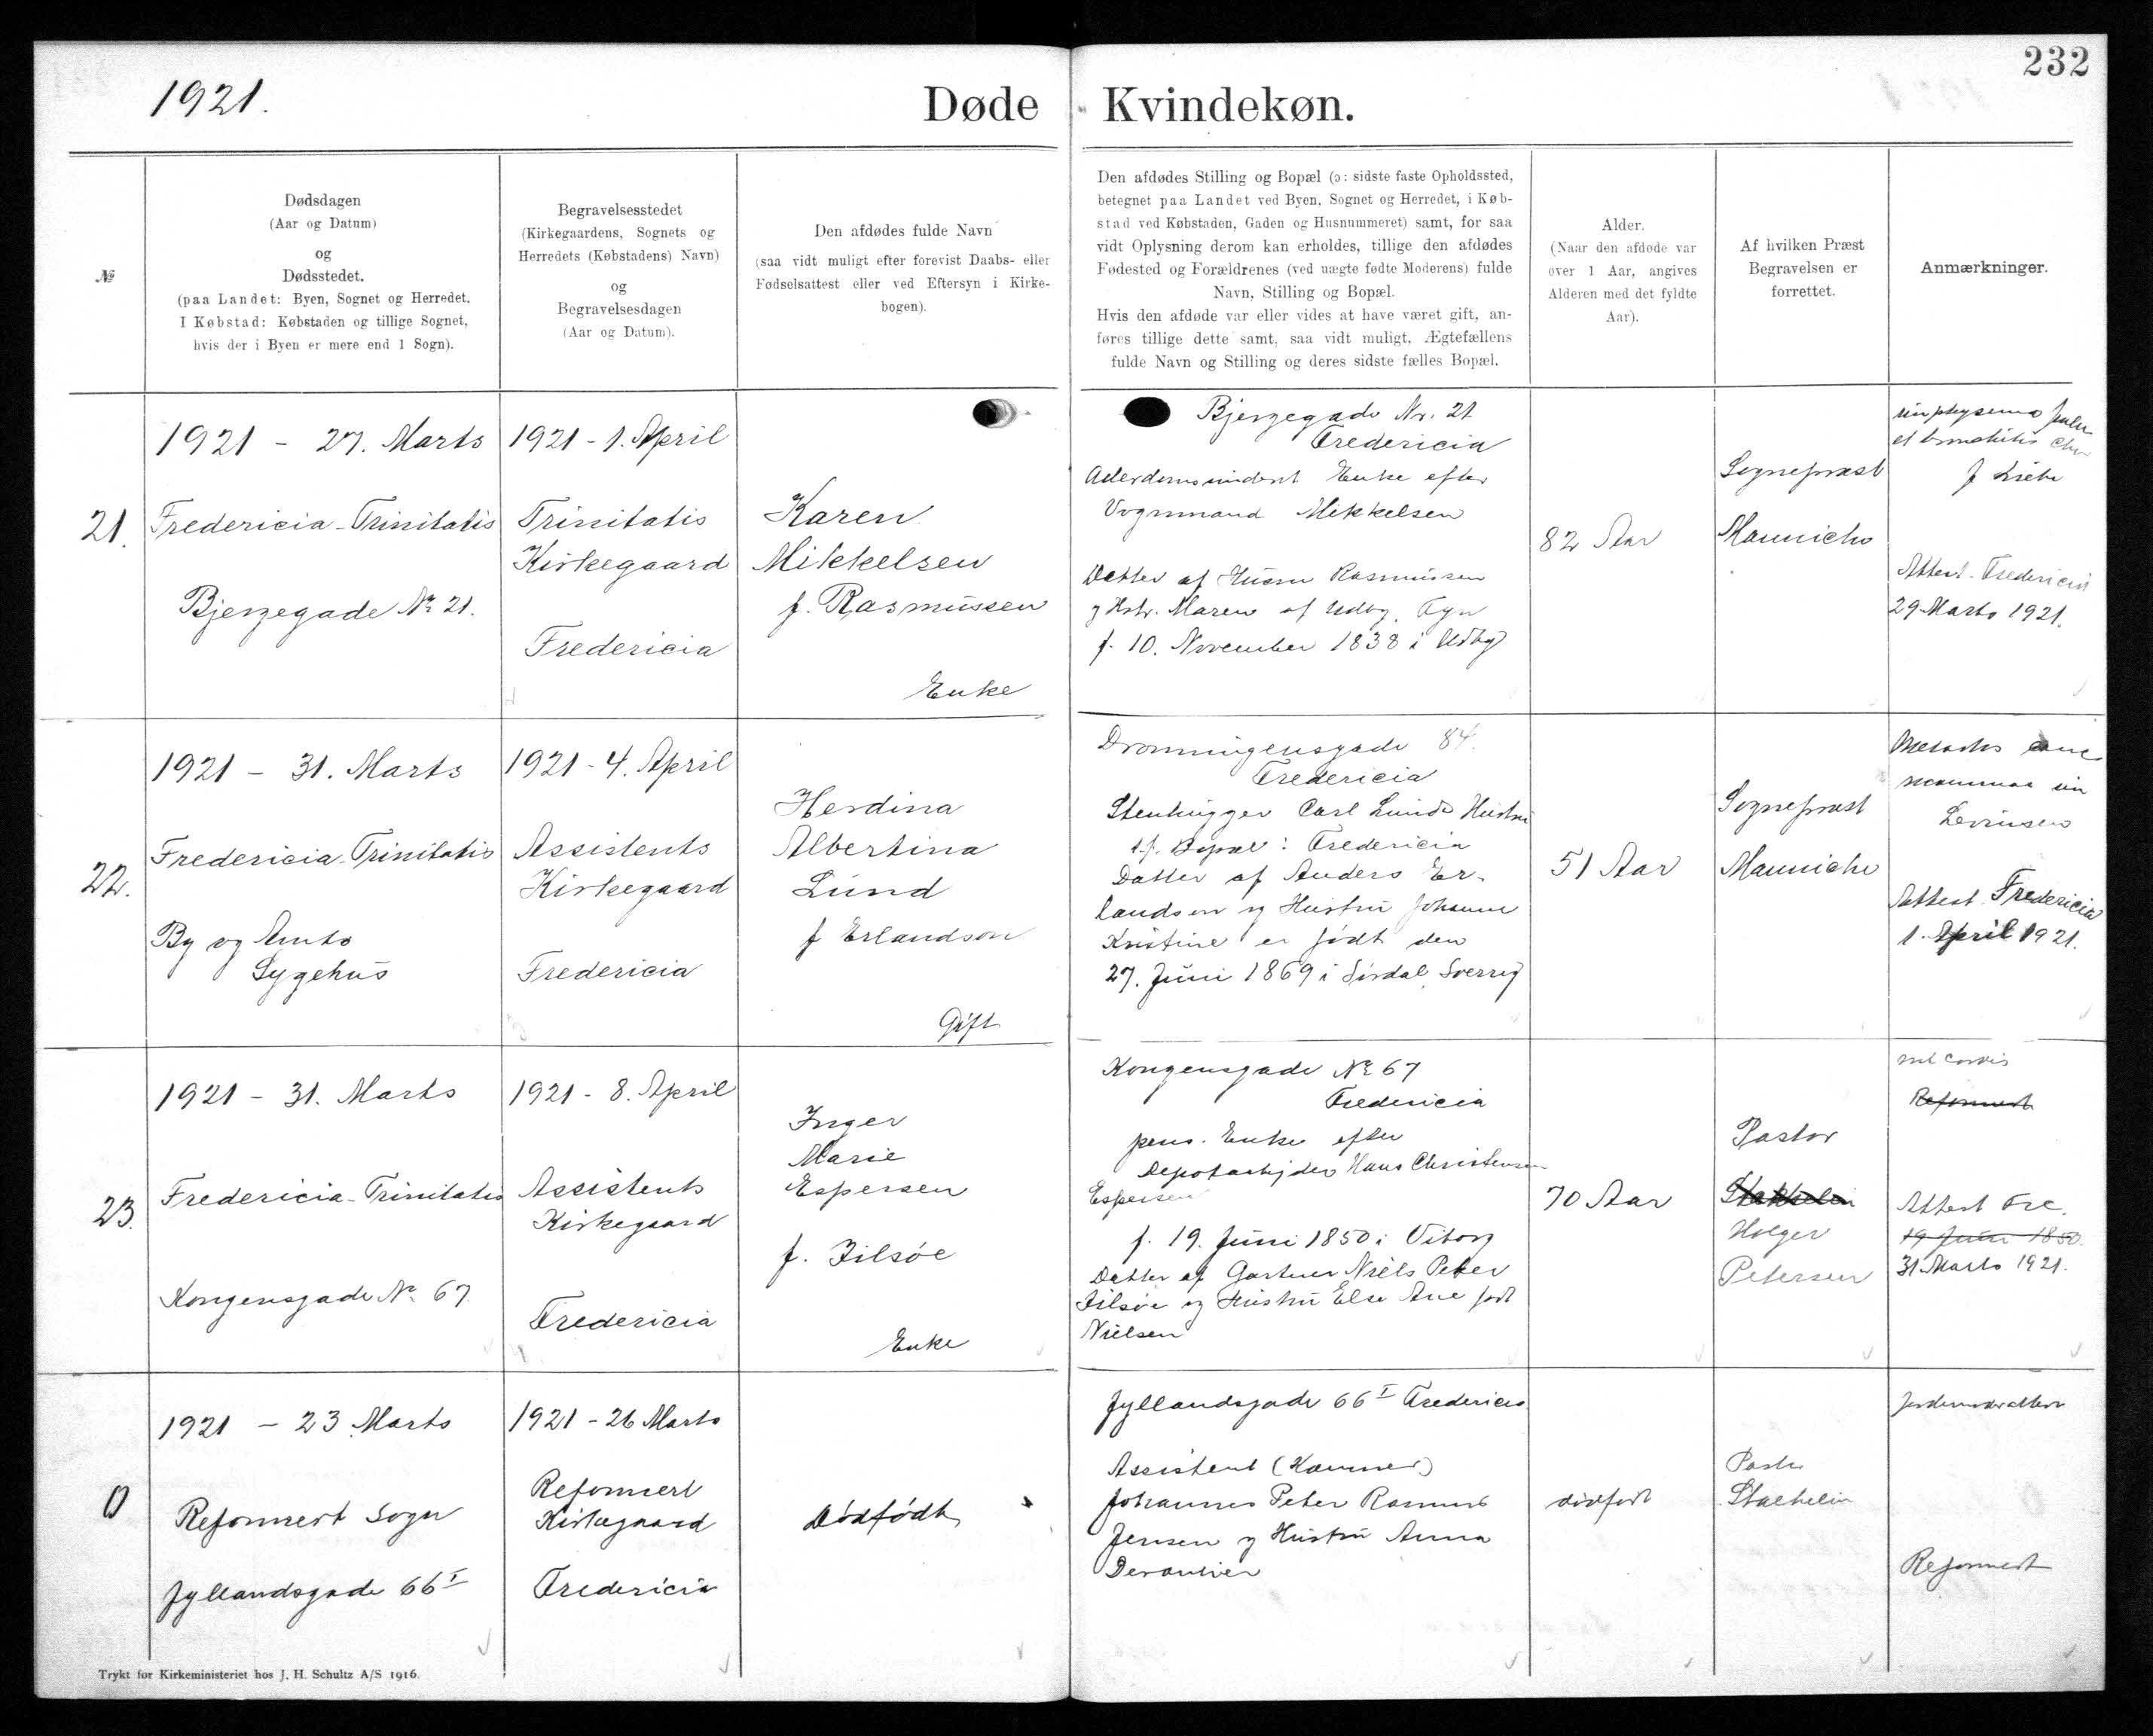 232
1921.
Døde Kvindekøn.
№
Dødsdagen
(Aar og Datum)
og
Dødsstedet.
(paa Landet: Byen, Sognet og Herredet.
I Købstad: Købstaden og tillige Sognet,
hvis der i Byen er mere end 1 Sogn).
Begravelsesstedet
(Kirkegaardens, Sognets og
Herredets (Købstadens) Navn)
og
Begravelsesdagen
(Aar og Datum).
Den afdødes fulde Navn
(saa vidt muligt efter forevist Daabs- eller
Fødselsattest eller ved Eftersyn i Kirke-
bogen).
Den afdødes Stilling og Bopæl (ɔ: sidste faste Opholdssted,
betegnet paa Landet ved Byen, Sognet og Herredet, i Køb-
stad ved Købstaden, Gaden og Husnummeret) samt, for saa
vidt Oplysning derom kan erholdes, tillige den afdødes
Fødested og Forældrenes (ved uægte fødte Moderens) fulde
Navn, Stilling og Bopæl.
Hvis den afdøde var eller vides at have været gift, an-
føres tillige dette samt, saa vidt muligt, Ægtefællens
fulde Navn og Stilling og deres sidste fælles Bopæl.
Alder.
(Naar den afdøde var
over 1 Aar, angives
Alderen med det fyldte
Aar).
Af hvilken Præst
Begravelsen er
forrettet.
Anmærkninger.
21.
1921 - 27. Marts
Fredericia-Trinitatis
Bjergegade Nr 21.
1921 - 1. April
Trinitatis
Kirkegaard
Fredericia
Karen
Mikkelsen
f. Rasmussen
Enke
Bjergegade Nr. 21
Fredericia
Enke efter
Vognmand Mikkelsen
Datter af Husm Rasmussen
og Hstr. Maren af Udby, Fyn
f. 10. November 1838 i Udby
82 Aar
Sognepræst
Manniche
et bronchitis
Attest. Fredericia
29 Marts 1921.
22.
1921 - 31. Marts
Fredericia-Trinitatis
By og Amts
Sygehus
1921 - 4. April
Assistents
Kirkegaard
Fredericia
Herdina
Albertina
Lund
f Erlandson
Gift
Dronningensgade 84.
Fredericia
Stenhugger Carl Lunds Hustru
s.f. Bopæl: Fredericia
Datter af Anders Er-
landson og Hustru Johanne
Kristine er født den
27. Juni 1869 i Sverrig
51 Aar
Sognepræst
Manniche
Levinsen
Attest Fredericia
1. April 1921.
23.
1921 - 31. Marts
Fredericia-Trinitatis
Kongensgade Nr. 67.
1921 - 8. April
Assistents
Kirkegaard
Fredericia
Inger
Marie
Espersen
f. Filsøe
Enke
Kongensgade Nr 67
Fredericia
pens. Enke efter
Depotarbejder Hans Christensen
Espersen
f. 19. Juni 1850 i Viborg
Datter af Gartner Niels Peter
Filsøe og Hustru Else Ane født
Nielsen
70 Aar
Pastor
Stæhelin
Holger
Petersen
Reformert
Attest Frc.
19 Juni 1850.
31 Marts 1921.
0
1921 - 23 Marts
Reformert Sogn
Jyllandsgade 66 I
1921 - 26 Marts
Reformert
Kirkegaard
Fredericia
Dødfødt
Jyllandsgade 66 I Fredericia
Assistent
Johannes Peter Rasmus
Jensen og Hustru Anna
Devantier
dødfødt
Pastor
Stæhelin
Jordemoderattest
Reformert
Trykt for Kirkeministeriet hos J. H. Schultz A/S 1916.